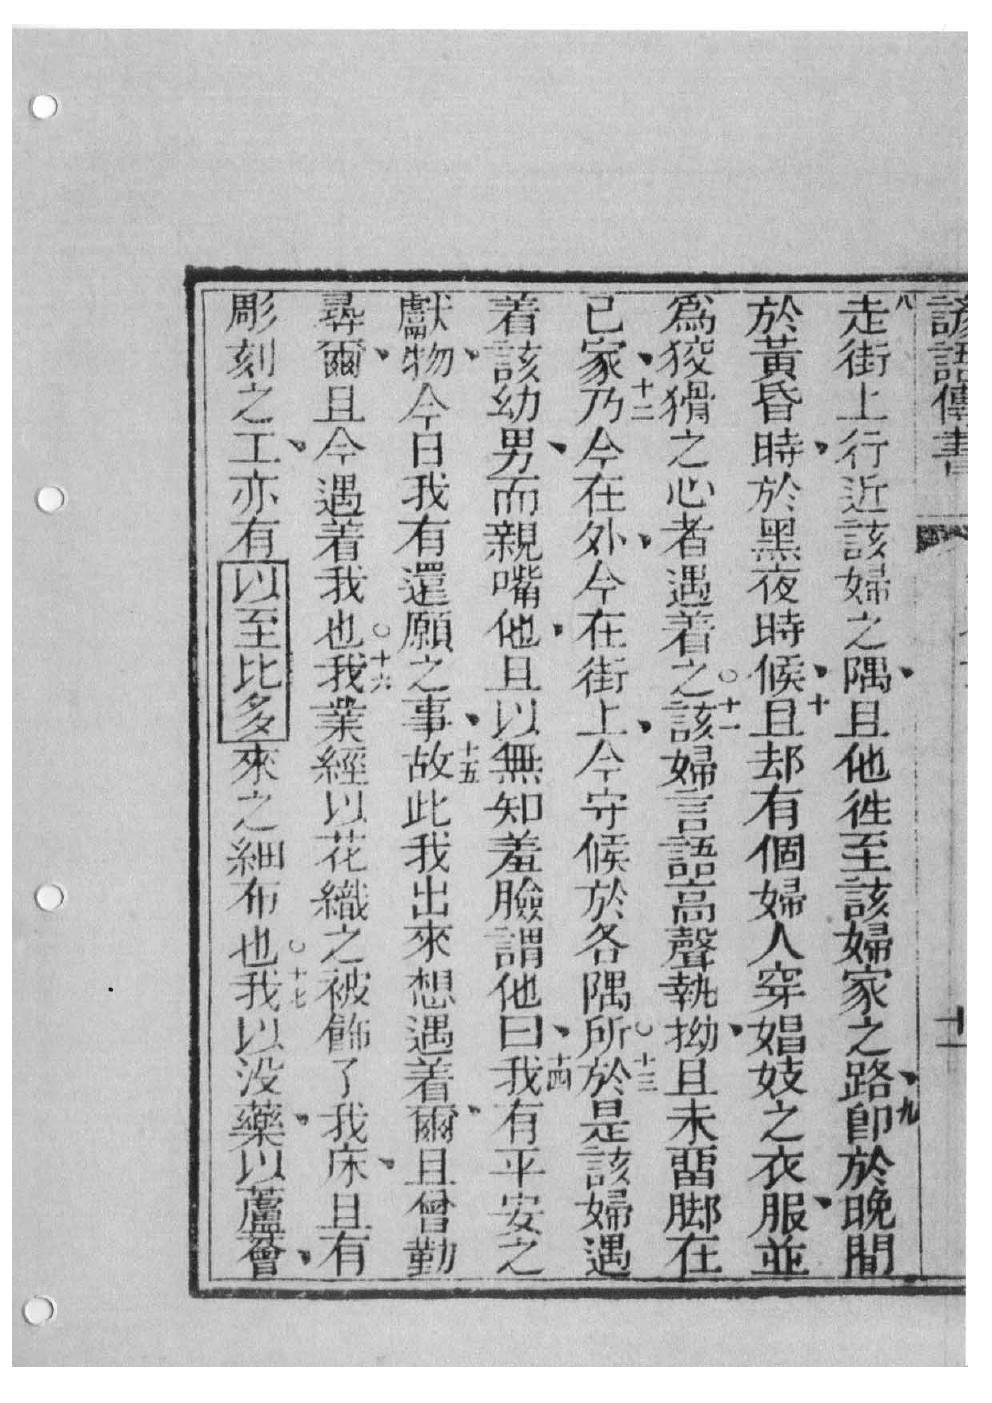 諺語傳書
八走街上行近該婦之隅、且他徃至該婦家之路、九卽於晚間
於黃昏時、於黑夜時候、十且却有個婦人穿娼妓之衣服、並
爲狡猾之心者遇着之。十一該婦言語高聲執拗、且未畱脚在
已家、十二乃今在外、今在街上、今守候於各隅所。十三於是該婦遇
着該幼男、而親嘴他、且以無知羞臉謂他曰、十四我有平安之
獻物、今日我有還願之事、十五故此我出來想遇着爾、且曾勤
尋爾、且今遇着我也。十六我業經以花織之被飾了我床、且有
彫刻之工、亦有以至比多來之細布也。十七我以没藥、以蘆薈、